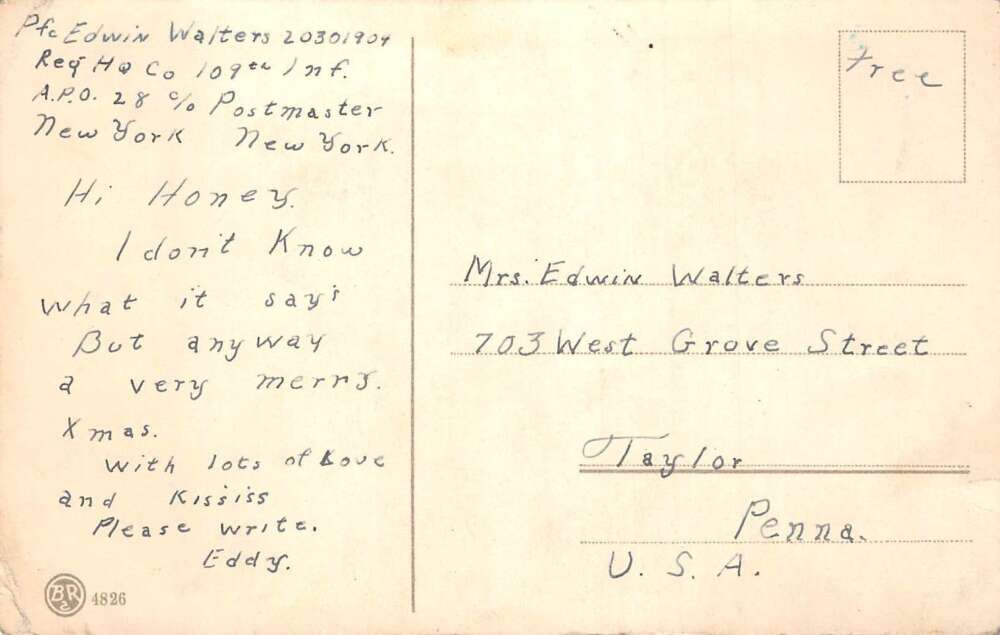 Pfc Edwin Walters 20301904
Reg HQ Co 109th Inf.
A.P.O. 28 c/o Postmaster
New York New York.
Hi Honey.
I don't Know
what it say's
But anyway
a very merry.
Xmas.
With lots of Love
and Kississ
Please write.
Eddy.
BR
2
4826
Free
Mrs. Edwin Walters
703 West Grove Street
Taylor
Penna.
U. S. A.